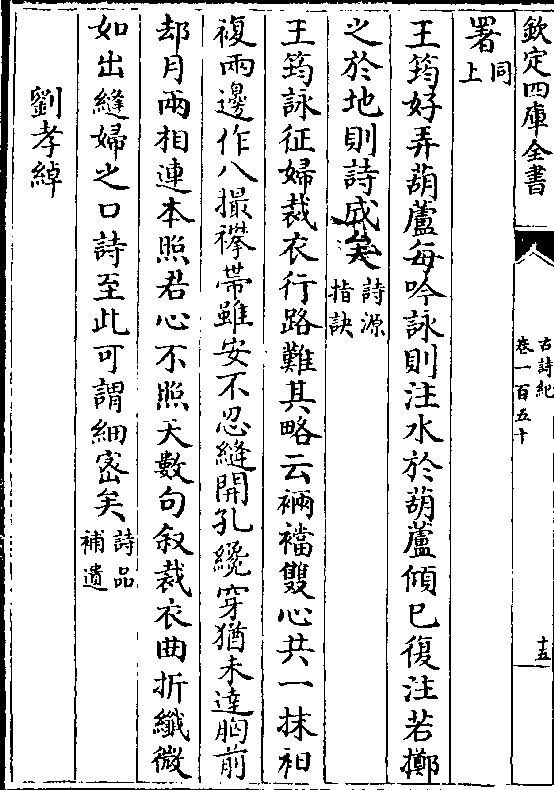 欽定四庫全書
古詩紀
卷一百五十
十五
署同上
王筠好弄葫蘆每吟詠則注水於葫蘆傾已復注若擲
之於地則詩成矣詩源指訣
王筠詠征婦裁衣行路難其略云裲襠雙心共一抹袙
複兩邊作八撮襻帶雖安不忍縫開孔纔穿猶未達胸前
却月兩相連本照君心不照天數句叙裁衣曲折纖微
如出縫婦之口詩至此可謂細密矣詩品補遺
劉孝綽